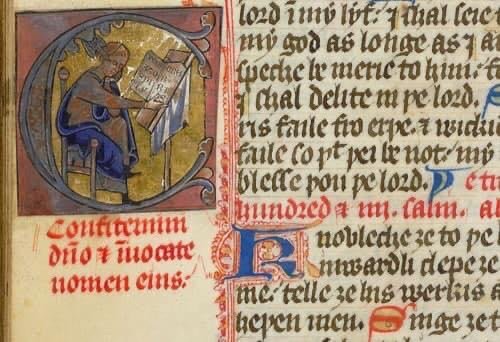 Confitemini
dño & īuocate
nomen eius:
lord ī my lyf: I shal seie
my god as longe as I a
speche be merie to him: 
I shal delite in þe lord. S
ris faile fro erþe. & wicki
faile so þt þei be not: my
blesse þou þe lord.
hundred & iiij. salm.
Knovleche ȝe to þe l
inwardli clepe ȝe
me: telle ȝe his werkis a
heþen men. Singe ȝe t